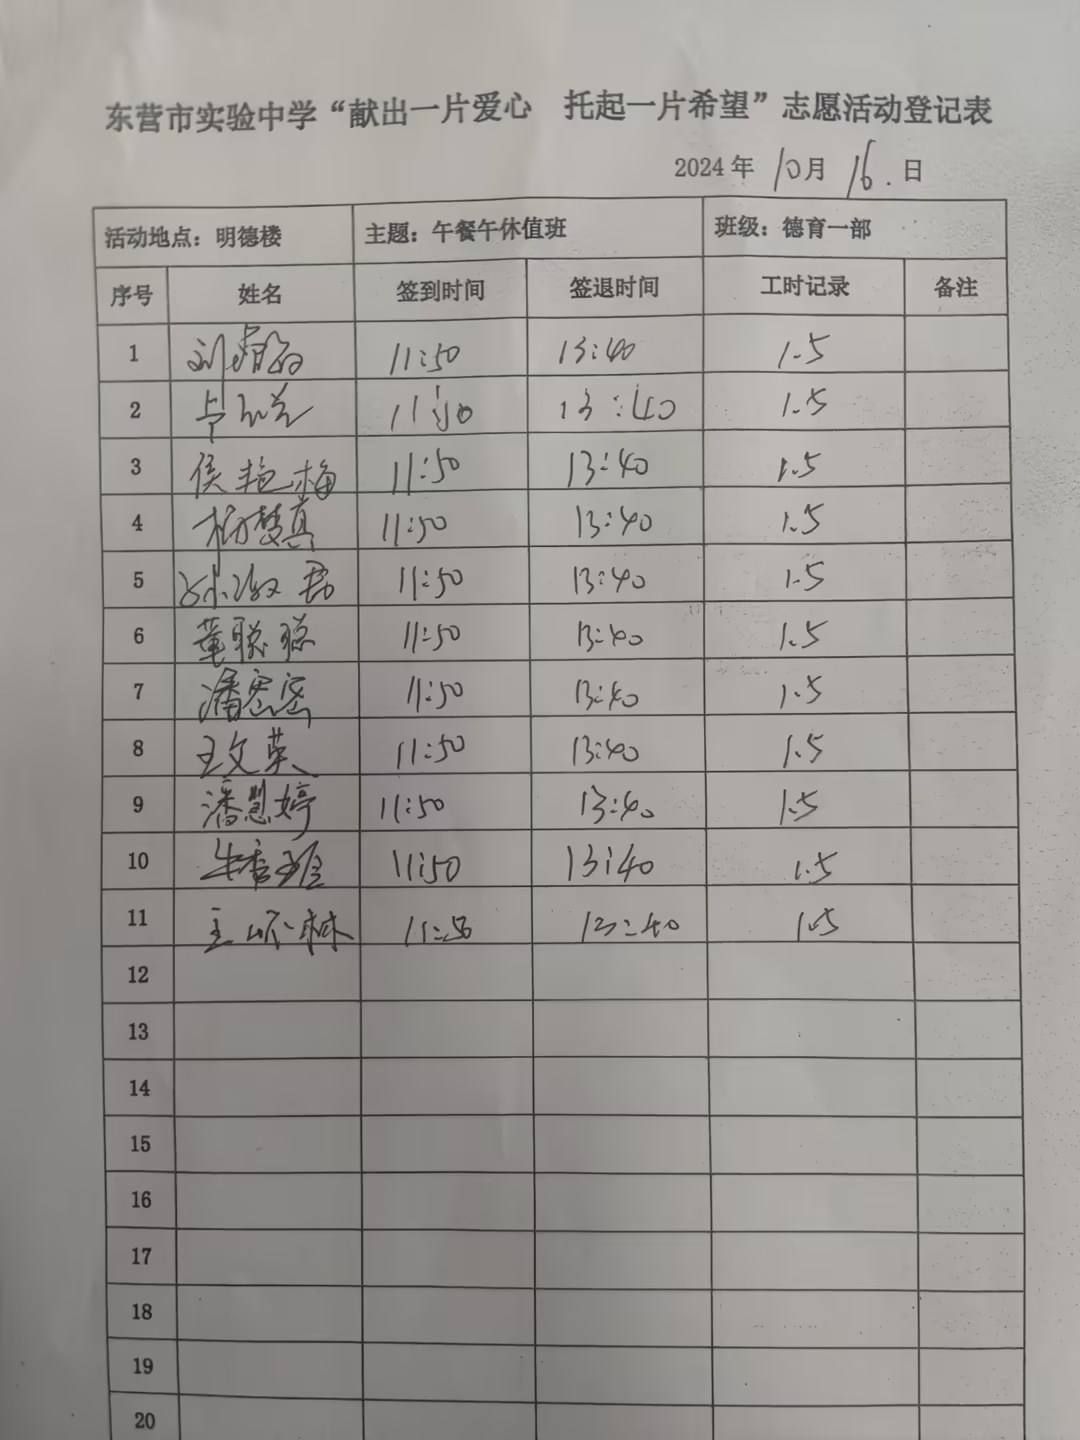 东营市实验中学“献出一片爱心 托起一片希望”志愿活动登记表
2024年 10月 16.日
活动地点：明德楼 主题：午餐午休值班 班级：德育一部
序号 姓名 签到时间 签退时间 工时记录 备注
1 刘 11:50 13:40 1.5
2 11:50 13:40 1.5
3 侯艳梅 11:50 13:40 1.5
4 杨慧真 11:50 13:40 1.5
5 孙淑君 11:50 13:40 1.5
6 董聪聪 11:50 13:40 1.5
7 潘密密 11:50 13:40 1.5
8 王文英 11:50 13:40 1.5
9 潘慧婷 11:50 13:40 1.5
10 牛 11:50 13:40 1.5
11 王 林 11:50 13:40 1.5
12
13
14
15
16
17
18
19
20